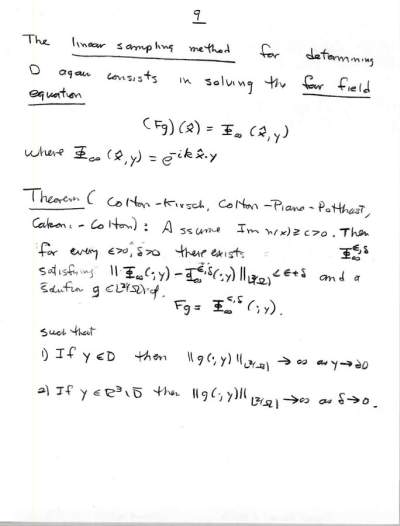 9
The linear sampling method for determining
D again consists in solving the far field
equation
(Fg)(x̂) = Φ∞(x̂,y)
where Φ∞(x̂,y) = e^{-ikx̂·y}
Theorem (Colton-Kirsch, Colton-Piana-Potthast,
Cakoni-Colton): Assume Im n(x) ≥ c > 0. Then
for every ε>0, δ>0 there exists Φ∞^{ε,δ}
satisfying ||Φ∞(·,y) - Φ∞^{ε,δ}(·,y)||_{L²(Ω)} < ε+δ and a
solution g ∈ L²(Ω) of
Fg = Φ∞^{ε,δ}(·,y).
such that
1) If y ∈ D then ||g(·,y)||_{L²(Ω)} → ∞ as y → ∂D
2) If y ∈ R³\D̄ then ||g(·,y)||_{L²(Ω)} → ∞ as δ → 0.